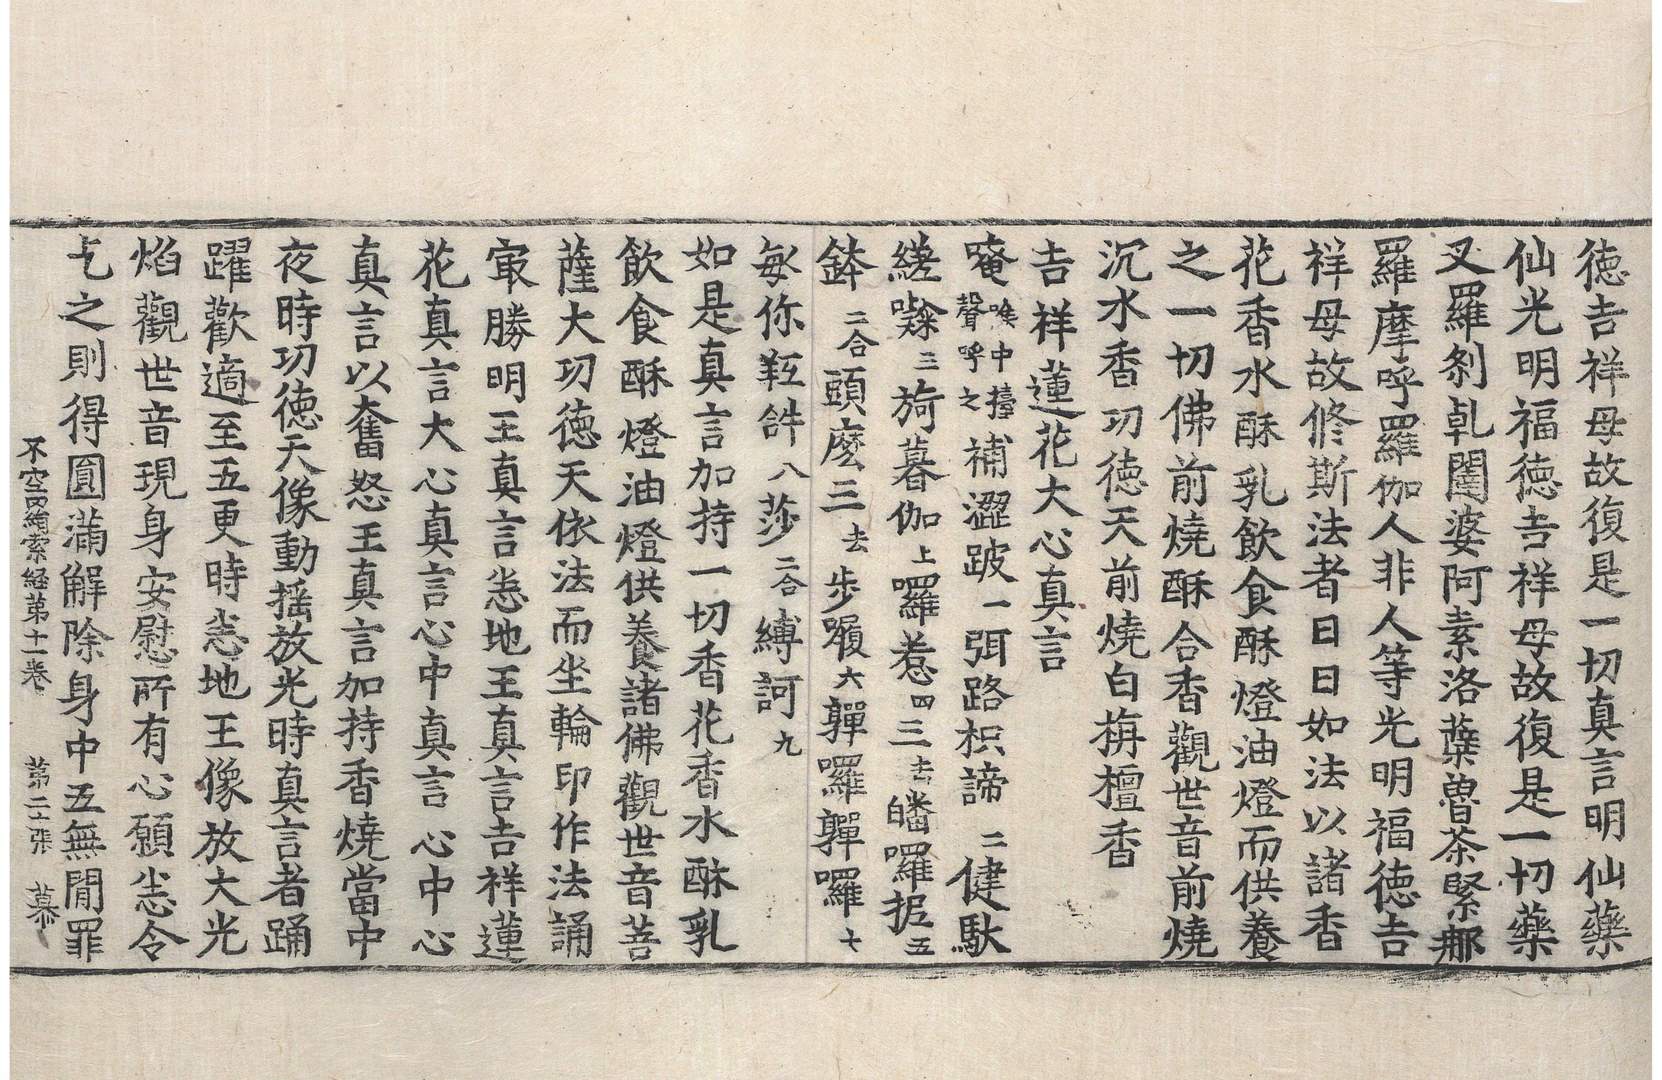 德吉祥母故復是一切真言明仙藥
仙光明福德吉祥母故復是一切藥
叉羅剎乹闥婆阿素洛蘖嚕荼緊那
羅摩呼羅伽人非人等光明福德吉
祥母故修斯法者日日如法以諸香
花香水酥乳飲食酥燈油燈而供養
之一切佛前燒酥合香觀世音前燒
沉水香功德天前燒白栴檀香
吉祥蓮花大心真言
唵喉中擡聲呼之補澀跛一弭路枳諦二健馱
縒㘑三旖暮伽上囉惹四三去皤囉抳五
鉢二合頭麽三去步履六㗚囉㗚囉七
每你羟𤙖八莎二合縛訶九
如是真言加持一切香花香水酥乳
飲食酥燈油燈供養諸佛觀世音菩
薩大功德天依法而坐輪印作法誦
㝡勝明王真言恣地王真言吉祥蓮
花真言大心真言心中真言心中心
真言以奮怒王真言加持香燒當中
夜時功德天像動搖放光時真言者踊
躍歡適至五更時恣地王像放大光
焰觀世音現身安慰所有心願恣令
乞之則得圓滿解除身中五無間罪
不空罥索経第十一卷 第二十張 慕